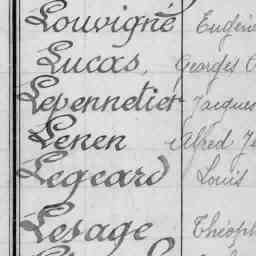 Louvigné Eugène
Lucas, Georges
Lepennetier Jacques
Lenen Alfred
Legeard Louis
Lesage Théoph